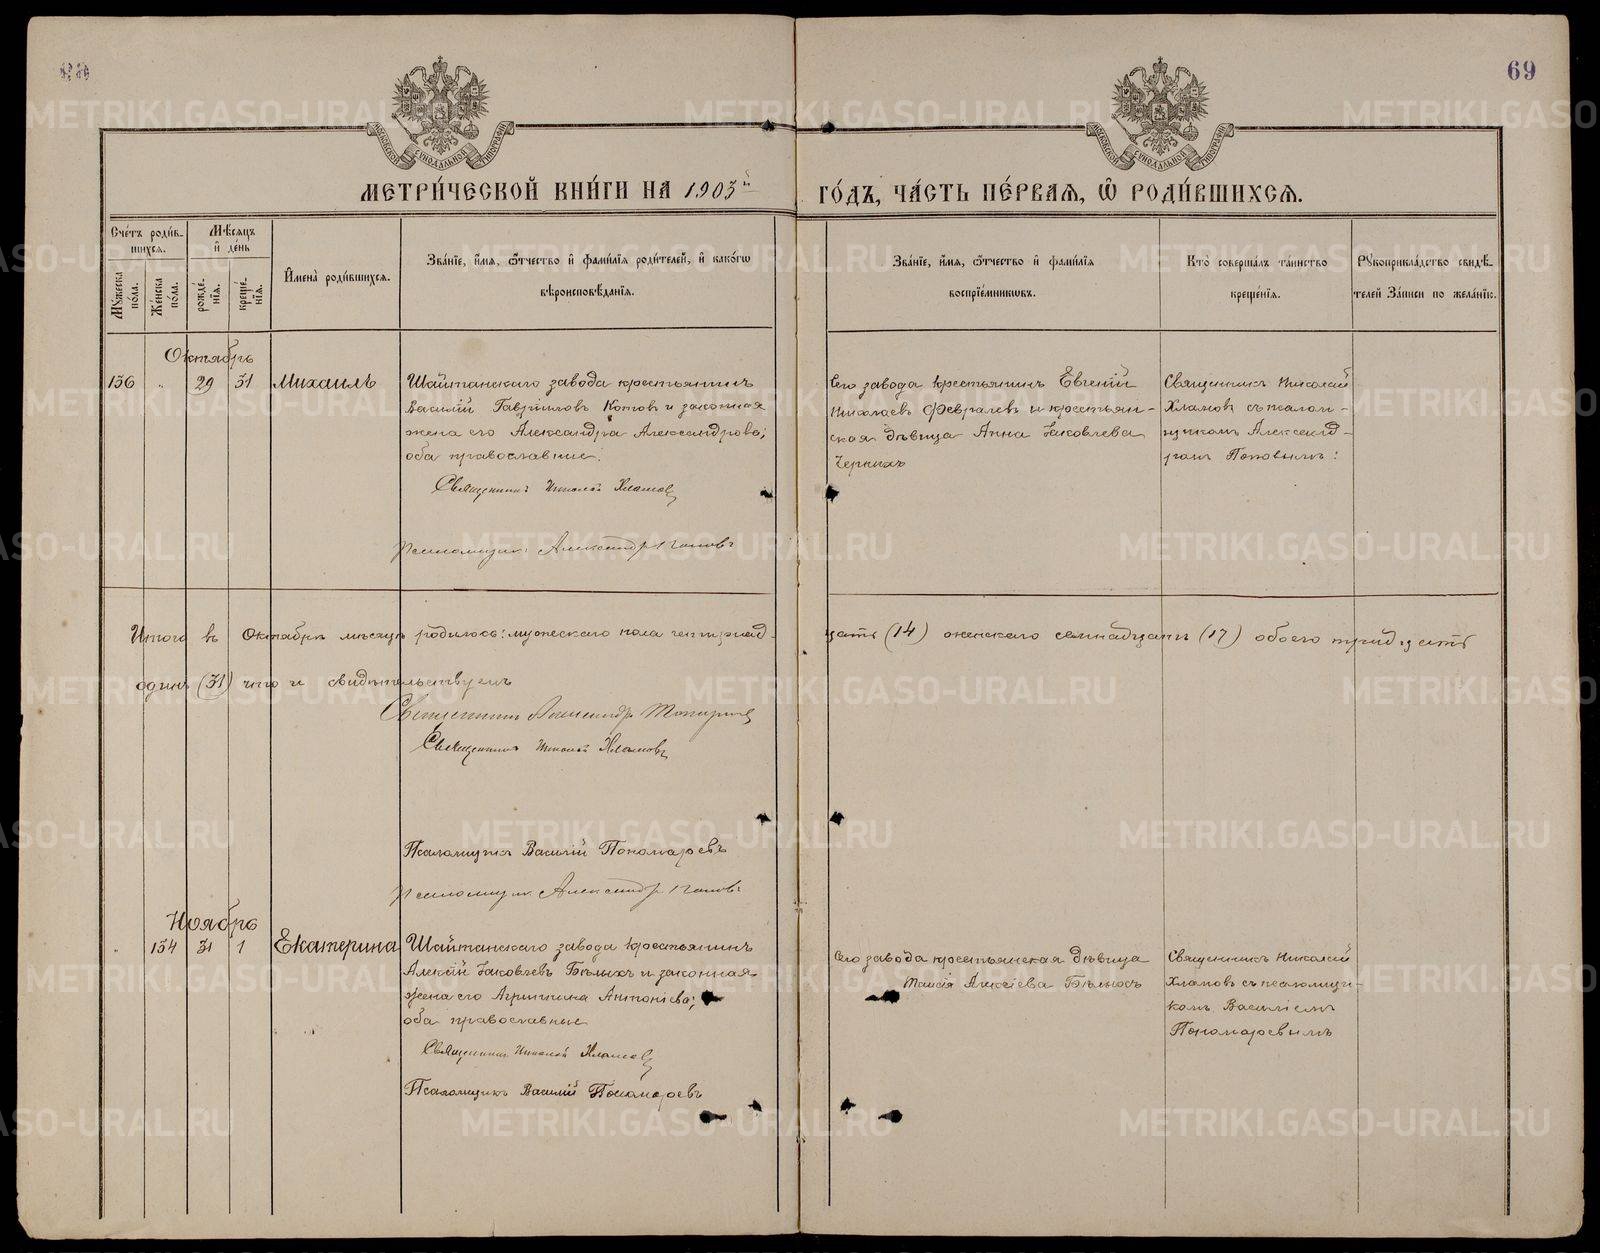 69
МЕТРИ́ЧЕСКОЙ КНИ́ГИ НА 1903й ГО́ДЪ, ЧА́СТЬ ПЕ́РВАЯ, Ѡ РОДИ́ВШИХСѦ.
МОСКОВСКОЙ СУНОДАЛЬНОЙ ТИПОГРАФІИ
МОСКОВСКОЙ СУНОДАЛЬНОЙ ТИПОГРАФІИ
Сче́тъ роди́в-
шихсѧ.
Мꙋжеска по́ла.
Же́нска по́ла.
Мѣ́сѧцъ
и҆ де́нь
рожде́нїѧ.
креще́нїѧ.
И҆мена̀ роди́вшихсѧ.
Зва́нїе, и҆́мѧ, ѻ҆́тчество и҆ фами́лїѧ роди́телей, и҆ како́гѡ
вѣроисповѣ́данїѧ.
Зва́нїе, и҆́мѧ, ѻ҆́тчество и҆ фами́лїѧ
воспрїе́мникѡвъ.
Кто̀ соверша́лъ та́инство
креще́нїѧ.
Рꙋкоприкла́дство свидѣ́-
телей За́писи по жела́нїю.
Октябрь
156 „ 29 31 Михаилъ
Шайтанскаго завода крестьянинъ
Василій Гавріиловъ Котовъ и законная
жена его Александра Александрова;
оба православные.
Священникъ Николай Хламовъ
Псаломщикъ Александръ Поповъ
Сего завода крестьянинъ Евгеній
Николаевъ Февралевъ и крестьян-
ская дѣвица Анна Іаковлева
Черныхъ
Священникъ Николай
Хламовъ съ псалом-
щикомъ Александ-
ромъ Поповымъ:
Итого въ Октябрѣ мѣсяцѣ родилось: мужескаго пола четырнад-
цать (14) женскаго семнадцать (17) обоего тридцать
одинъ (31) что и свидѣтельствуемъ
Священникъ Александръ
Священникъ Николай Хламовъ
Псаломщикъ Василій Пономаревъ
Псаломщикъ Александръ Поповъ
Ноябрь
„ 154 31 1 Екатерина
Шайтанскаго завода крестьянинъ
Алексій Іаковлевъ Бѣлыхъ и законная
жена его Агриппина Антоніева;
оба православные
Священникъ Николай Хламовъ
Псаломщикъ Василій Пономаревъ
Сего завода крестьянская дѣвица
Таисія Алексіева Бѣлыхъ
Священникъ Николай
Хламовъ съ псаломщи-
комъ Василіемъ
Пономаревымъ
METRIKI.GASO-URAL.RU